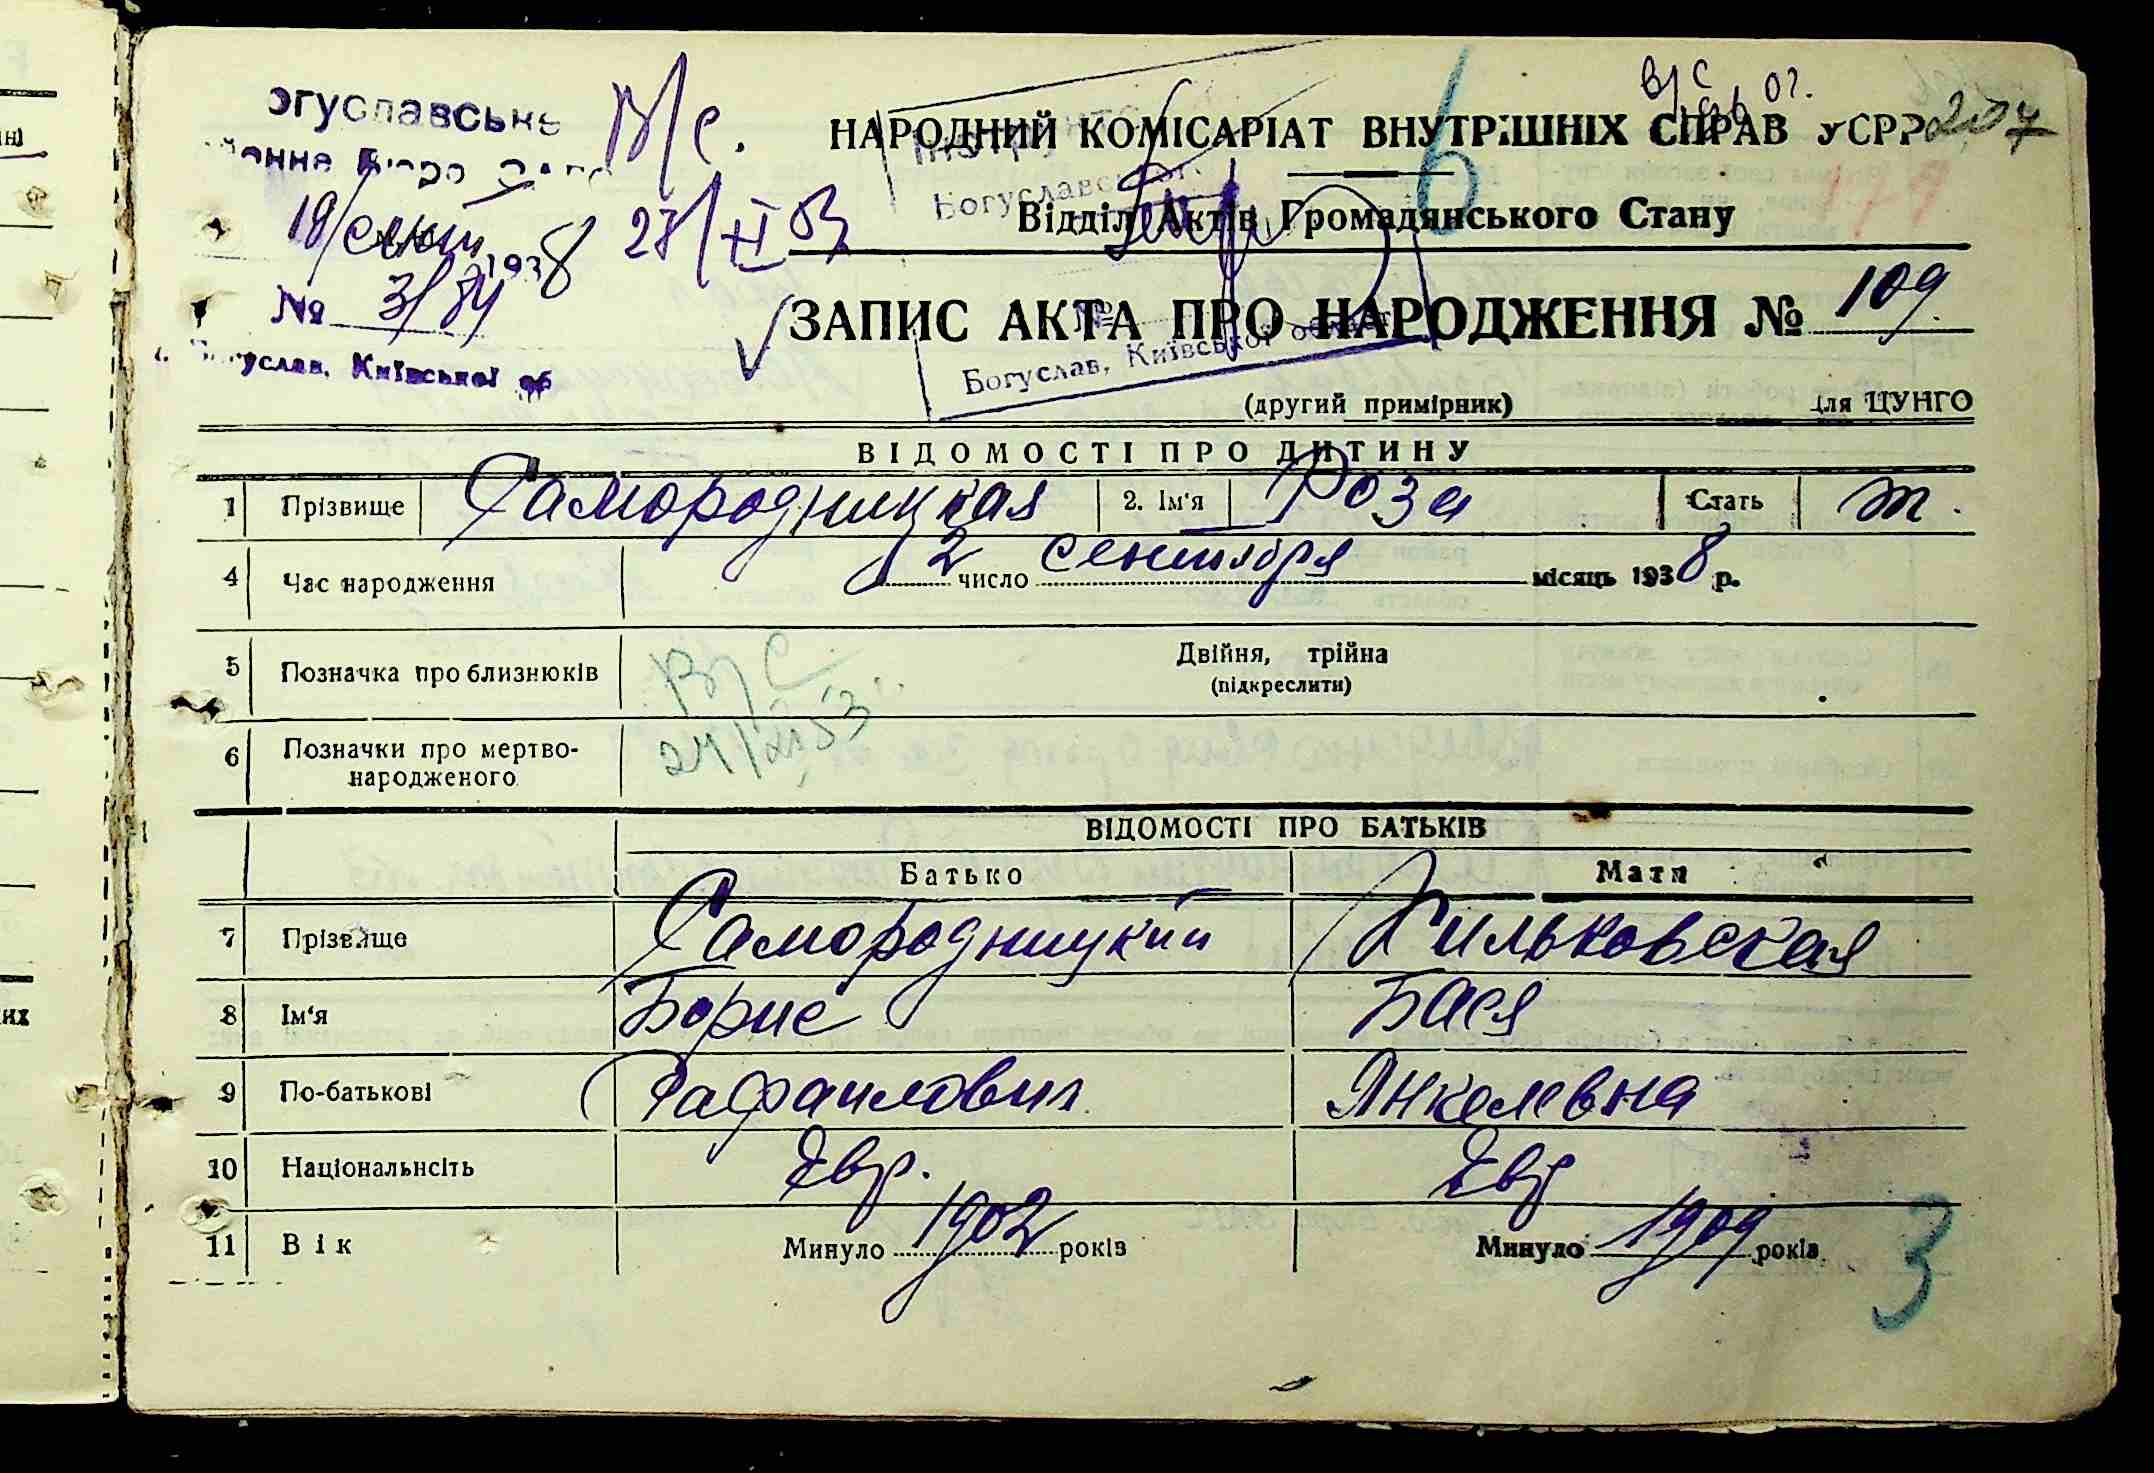 В/с 02.
НАРОДНИЙ КОМІСАРІАТ ВНУТРІШНІХ СПРАВ УСРР 207
огуславське В/с.
Відділ Актів Громадянського Стану
179
19/сент 1938 28/XI 53
№ 3/84
ЗАПИС АКТА ПРО НАРОДЖЕННЯ № 109
Богуслав, Київської області
огуслав, Київської об
(другий примірник) для ЦУНГО
ВІДОМОСТІ ПРО ДИТИНУ
1 Прізвище Самородницкая 2. Ім'я Роза 3 Стать ж.
4 Час народження 2 число сентября місяць 1938 р.
5 Позначка про близнюків Двійня, трійна
(підкреслити)
В/с
6 Позначки про мертво-
народженого
ВІДОМОСТІ ПРО БАТЬКІВ
Батько Мати
7 Прізвище Самородницкий Хильковская
8 Ім'я Борис Бася
9 По-батькові Рафаилович Янкелевна
10 Національнсіть Евр. Евр
11 Вік Минуло 1902 років Минуло 1909 років
3